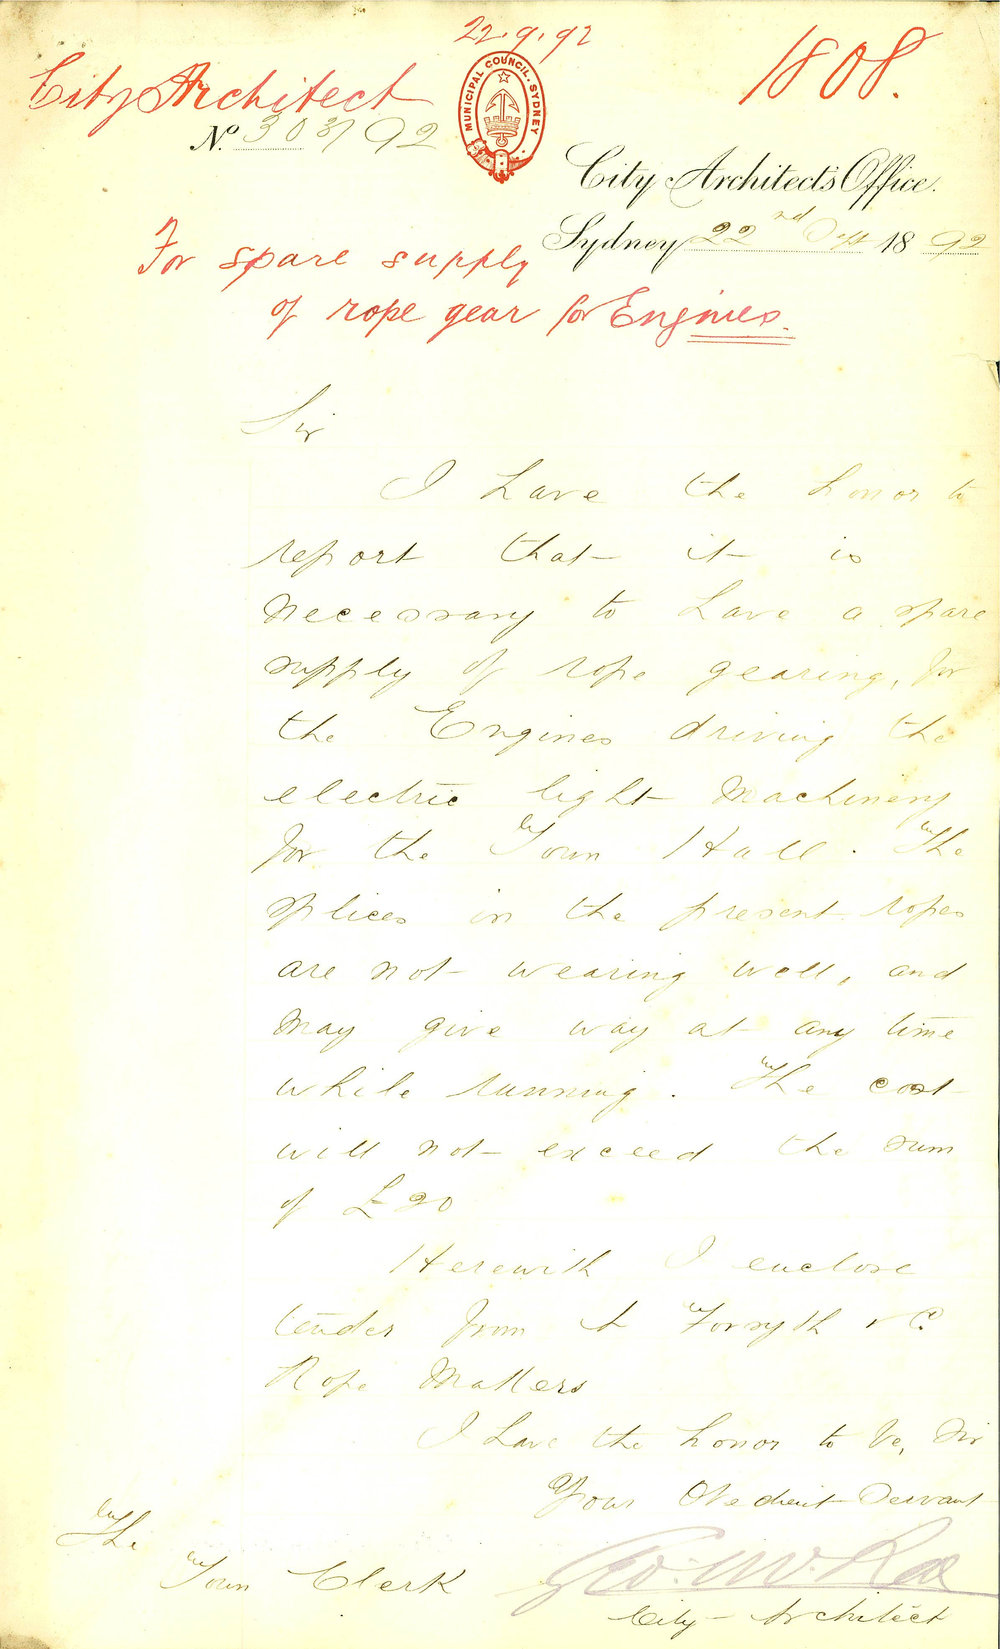 22.9.92
1808.
City Architect
MUNICIPAL COUNCIL. SYDNEY
No. 303/92
City Architect's Office.
Sydney 22nd Sept 1892
For spare supply
of rope gear for Engines.
Sir
I have the honor to
report that it is
necessary to have a spare
supply of rope gearing, for
the Engines driving the
electric light Machinery
for the Town Hall. The
splices in the present ropes
are not wearing well, and
may give way at any time
while running. The cost
will not exceed the sum
of £20
Herewith I enclose
tender from A Forsyth & C.
Rope Makers
I have the honor to be, Sir
Your Obedient Servant
Geo. McRae
City Architect
The
Town Clerk